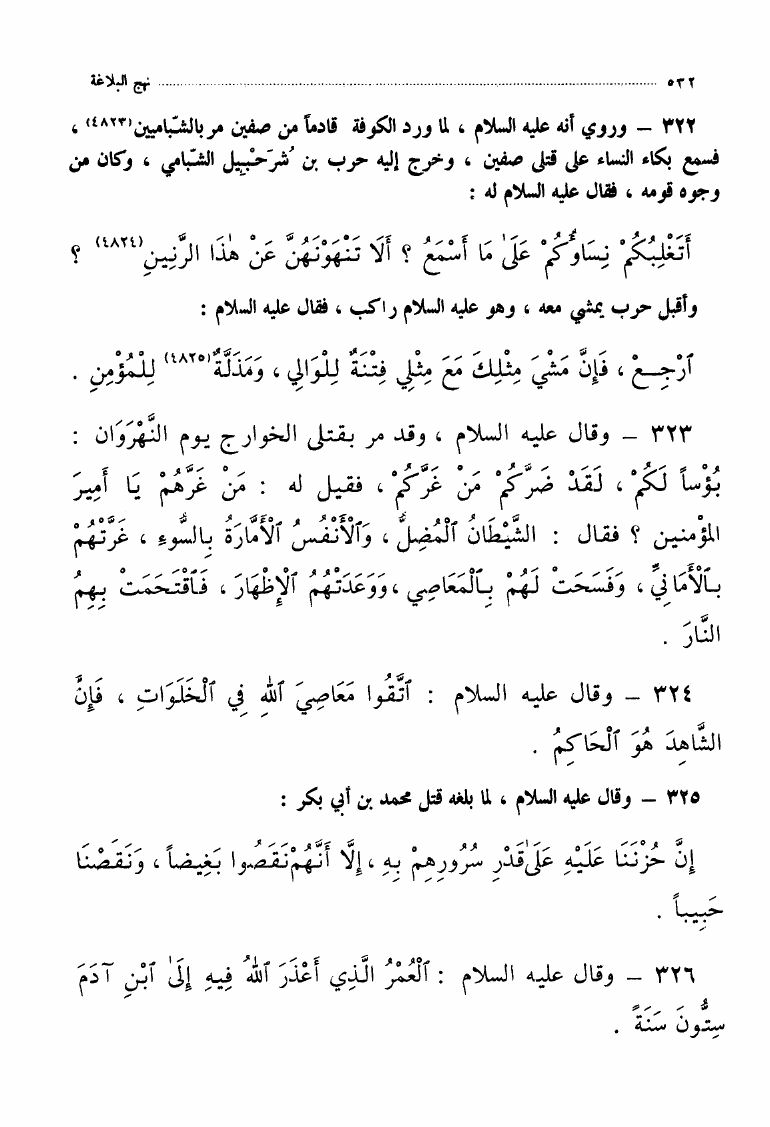 ٥٣٢ ........................ نهج البلاغة
٣٢٢ – وروي أنه عليه السلام ، لما ورد الكوفة قادماً من صفين مر بالشّباميين(٤٨٢٣) ،
فسمع بكاء النساء على قتلى صفين ، وخرج إليه حرب بن شُرَحْبِيل الشّبامي ، وكان من
وجوه قومه ، فقال عليه السلام له :
أَتَغْلِبُكُمْ نِسَاؤُكُمْ عَلَىٰ مَا أَسْمَعُ ؟ أَلَا تَنْهَوْنَهُنَّ عَنْ هٰذَا الرَّنِينِ(٤٨٢٤) ؟
وأقبل حرب يمشي معه ، وهو عليه السلام راكب ، فقال عليه السلام :
ٱرْجِعْ ، فَإِنَّ مَشْيَ مِثْلِكَ مَعَ مِثْلِي فِتْنَةٌ لِلْوَالِي ، وَمَذَلَّةٌ(٤٨٢٥) لِلْمُؤْمِنِ .
٣٢٣ – وقال عليه السلام ، وقد مر بقتلى الخوارج يوم النَّهْرَوَان :
بُؤْساً لَكُمْ ، لَقَدْ ضَرَّكُمْ مَنْ غَرَّكُمْ ، فقيل له : مَنْ غَرَّهُمْ يَا أَمِيرَ
المؤمنين ؟ فقال : الشَّيْطَانُ ٱلْمُضِلُّ ، وَٱلْأَنْفُسُ ٱلْأَمَّارَةُ بِالسُّوءِ ، غَرَّتْهُمْ
بِٱلْأَمَانِيِّ ، وَفَسَحَتْ لَهُمْ بِٱلْمَعَاصِي ، وَوَعَدَتْهُمُ ٱلْإِظْهَارَ ، فَٱقْتَحَمَتْ بِهِمُ
النَّارَ .
٣٢٤ – وقال عليه السلام : ٱتَّقُوا مَعَاصِيَ ٱللهِ فِي ٱلْخَلَوَاتِ ، فَإِنَّ
الشَّاهِدَ هُوَ ٱلْحَاكِمُ .
٣٢٥ – وقال عليه السلام ، لما بلغه قتل محمد بن أبي بكر :
إِنَّ حُزْنَنَا عَلَيْهِ عَلَىٰ قَدْرِ سُرُورِهِمْ بِهِ ، إِلَّا أَنَّهُمْ نَقَصُوا بَغِيضاً ، وَنَقَصْنَا
حَبِيباً .
٣٢٦ – وقال عليه السلام : ٱلْعُمْرُ الَّذِي أَعْذَرَ ٱللهُ فِيهِ إِلَىٰ ٱبْنِ آدَمَ
سِتُّونَ سَنَةً .